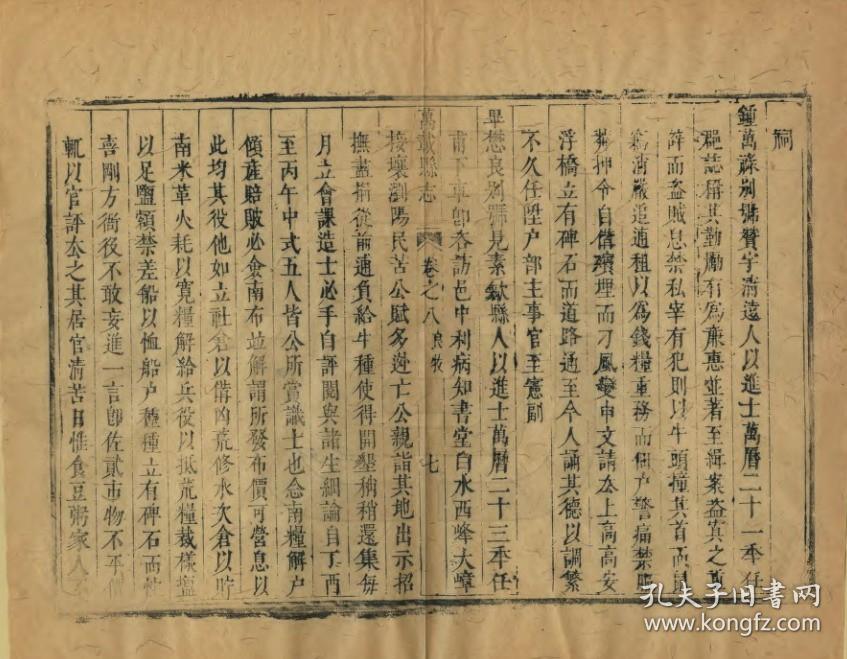 祠
鍾萬祿別號贊宇清遠人以進士萬曆二十一年任
邑誌稱其勤勵有為廉惠並著至緝案盜寘之重
辟而盜賊息禁私宰有犯則以牛頭撞其首而
為消嚴追逋租以為錢糧重務而佃户警痛禁
押令自偹殯埋而刁風變申文請厺上高高安
浮橋立有碑石而道路通至今人誦其德以調繁
不久任陞户部主事官至憲副
畢懋良別號見素歙縣人以進士萬曆二十三年任
甫下車卽咨訪邑中利病知書堂白水西峰大嶂
接壤瀏陽民苦公賦多逃亡公親詣其地出示招
撫蓋捐從前逋負給牛種使得開墾稍稍還集每
萬載縣志 卷之八 良牧 七
月立會課造士必手自評閱與諸生細論自丁酉
至丙午中式五人皆公所賞識士也念南糧解户
傾產賠貱必僉南布並解謂所發布價可營息以
此均其役他如立社倉以偹凶荒修水次倉以貯
南米革火耗以寬糧解給兵役以抵荒糧裁樣鹽
以足鹽額禁差船以恤船户種種立有碑石而性
喜剛方衙役不敢妄進一言卽佐貳市物不平
輒以官評厺之其居官清苦日惟食豆粥家人
孔夫子旧书网
www.kongfz.com